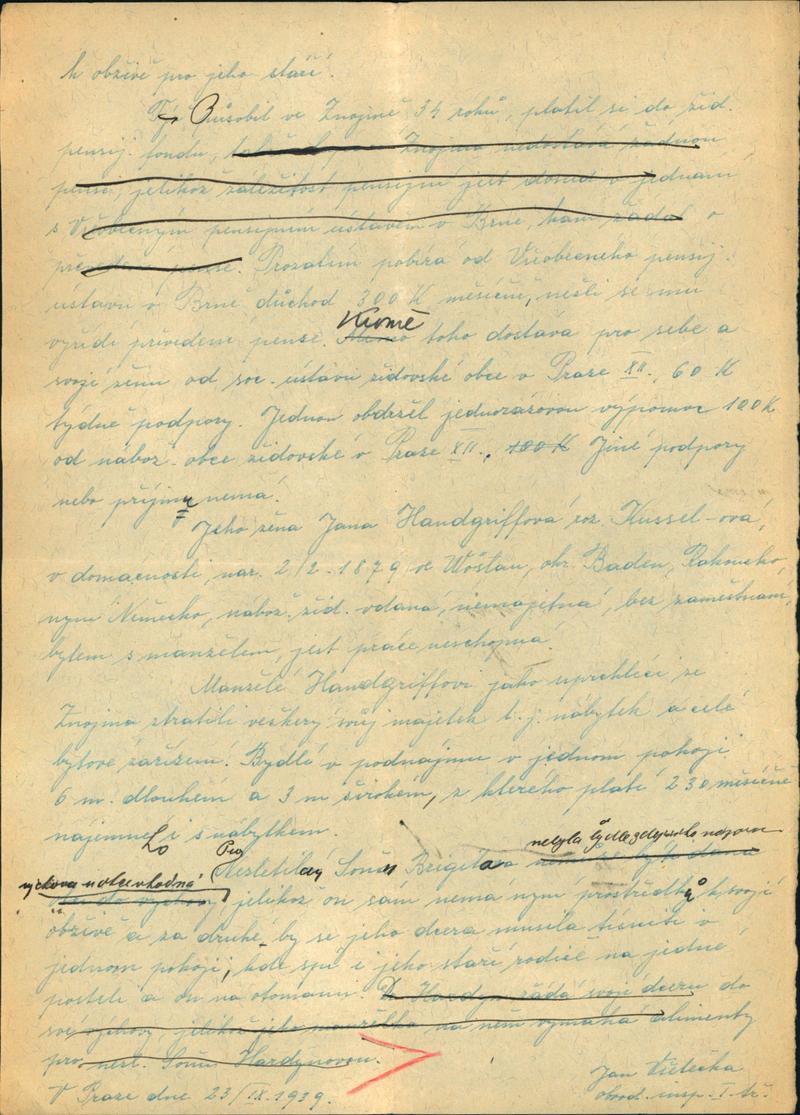 k obživě pro jeho stáří.
Působil ve Znojmě 34 roků, platil si do žid.
pensij. fondu, Znojma nedostává žádnou
pensi, jelikož záležitost pensijní jest dosud v jednání
s Všeobecným pensijním ústavem v Brně, kam žádal o
převedení pense. Prozatím pobírá od Všeobecného pensij.
ústavu v Brně důchod 300 K měsíčně, nežli se mu
vyřídí převedení pense. Kromě toho dostává pro sebe a
svoji ženu od soc. ústavu židovské obce v Praze XII., 60 K
týdně podpory. Jednou obdržel jednorázovou výpomoc 100 K
od nábož. obce židovské v Praze XII., 100 K Jiné podpory
nebo příjmy nemá.
Jeho žena Jana Handgriffová roz. Kussel-ová,
v domácnosti, nar. 2/2. 1879 ve Wöslau, okr. Baden, Rakousko,
nyní Německo, nábož. žid. vdaná, nemajetná, bez zaměstnání,
bytem s manželem, jest práce neschopná.
Manželé Handgriffovi jako uprchlíci ze
Znojma ztratili veškerý svůj majetek t. j. nábytek a celé
bytové zařízení. Bydlí v podnájmu v jednom pokoji
6 m. dlouhém a 3 m širokém, z kterého platí 230 měsíčně
nájemné i s nábytkem.
nebyla by dle zdejšího názoru
Pro Nezletilá Soňa Brigita
výchova u otce vhodná
do výchovy, jelikož on sám nemá nyní prostředků k svojí
obživě a za druhé by se jeho dcera musila tísniti v
jednom pokoji, kde spí i jeho staří rodiče na jedné
posteli a on na otomanu. Hardyn žádá svoji dceru do
své výchovy, jelikož jeho manželka na něm vymáhá alimenty
pro nezl. Soňu Hardynovou.
V Praze dne 23/IX. 1939.
Jan Všetečka
obvod. insp. I. tř.